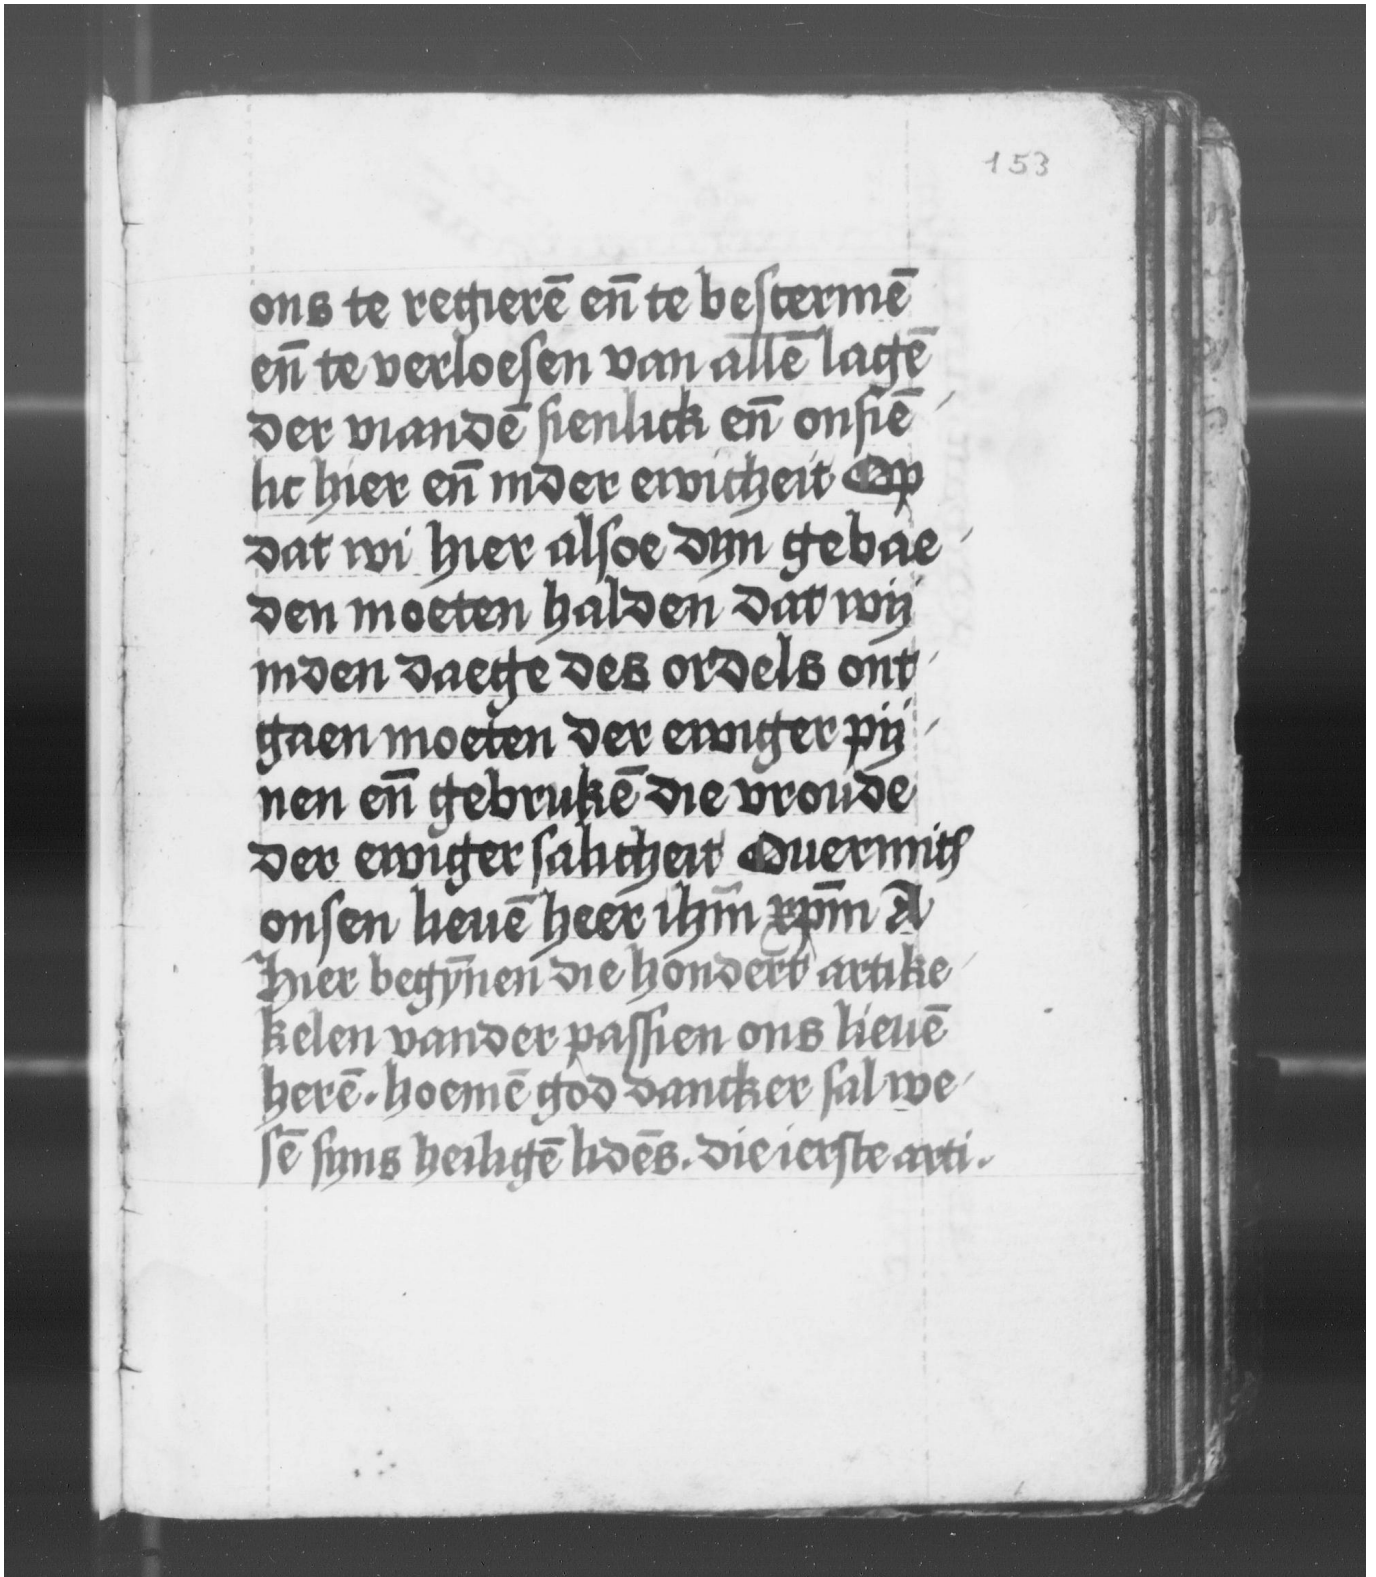 153
ons te regierē en̄ te bescermē
en̄ te verloesen van allē lagē
der viandē sienlick en̄ onsiē
lic hier en̄ inder ewicheit Op
dat wi hier alsoe dyn gebae
den moeten halden dat wij
inden daege des ordels ont
gaen moeten der ewiger pij
nen en̄ gebrukē die vroude
der ewiger salicheit Ouermits
onsen lieuē heer ihm̄ xpm̄ A
Hier begȳnen die hondert artike
kelen vander passien ons lieuē
herē. hoemē god dancker sal we
sē syns heiligē lidēs. die ierste arti.